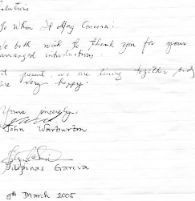 To Whom It May Concern:
We both wish to thank you for your
arranged introduction,
At present we are living together and
are very happy.
Yours sincerely,
John Warburton
9th March 2005